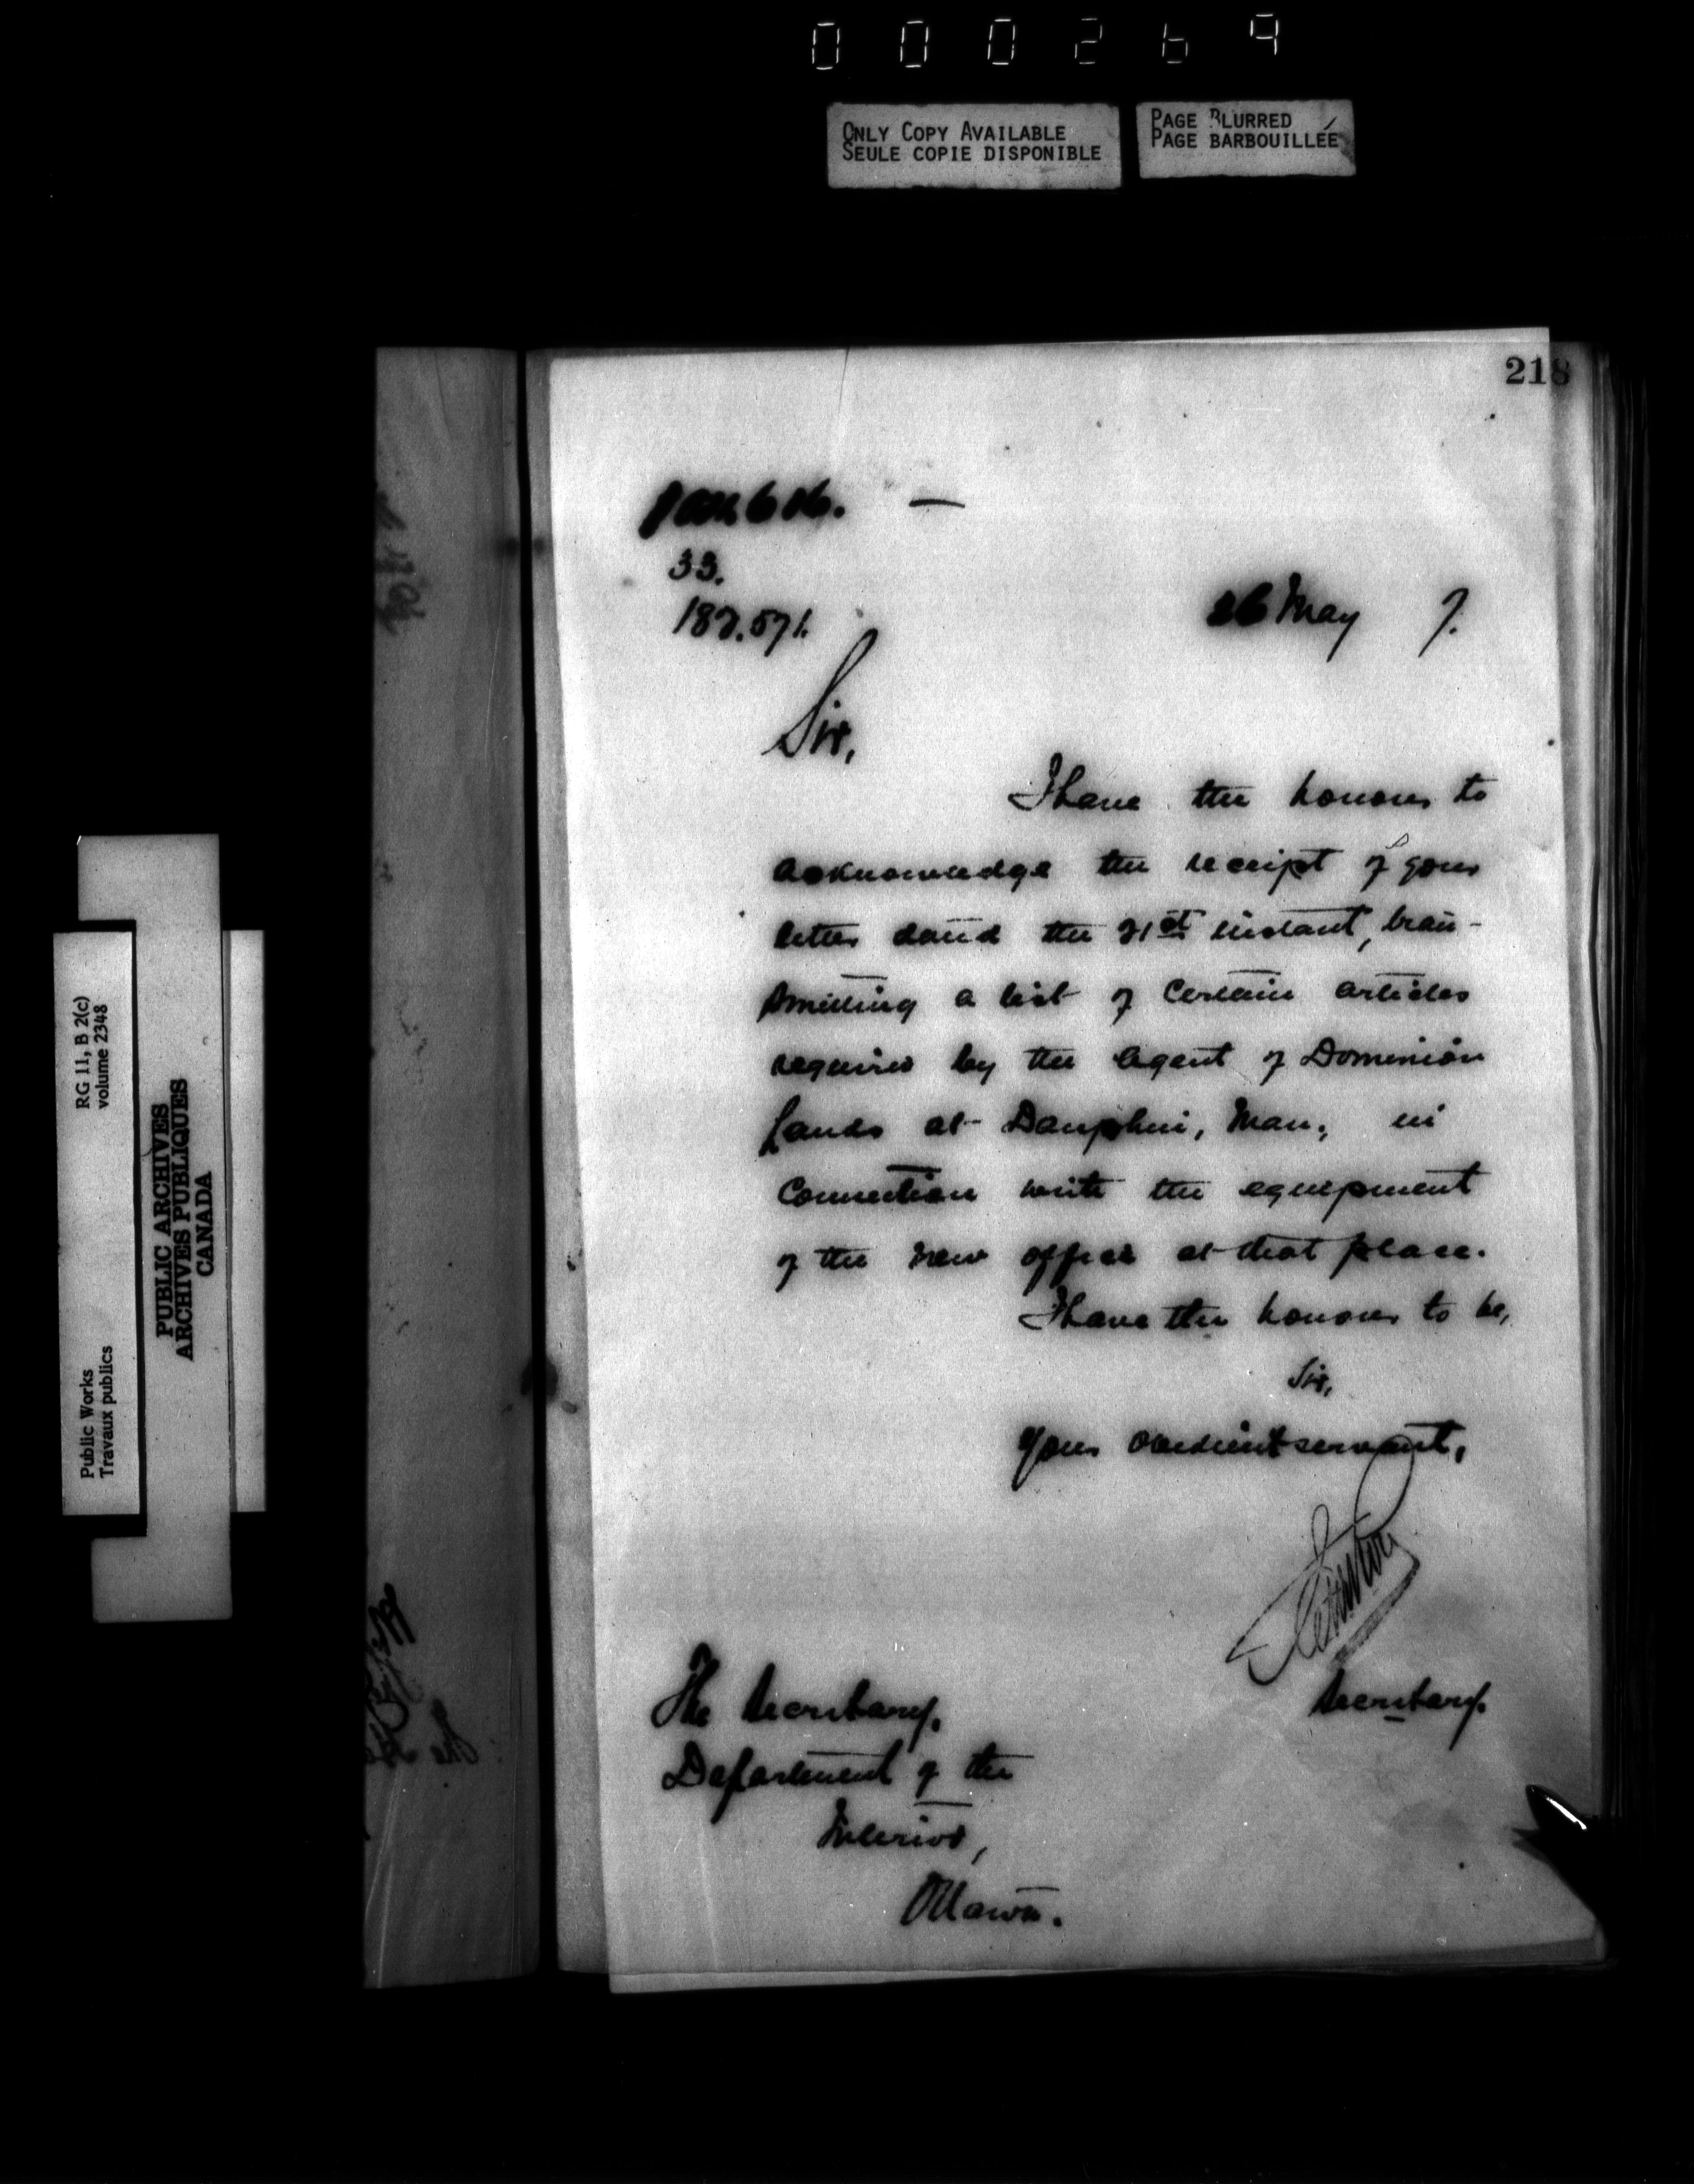 000269
ONLY COPY AVAILABLE
SEULE COPIE DISPONIBLE
PAGE BLURRED
PAGE BARBOUILLÉE
218
33.
26 May 7.
Sir,
I have the honour to
acknowledge the receipt of your
letter dated the 21st instant, tran-
smitting a list of certain articles
required by the Agent of Dominion
Lands at Dauphin, Man., in
connection with the equipment
of the new office at that place.
I have the honour to be,
Sir,
Your obedient servant,
Secretary.
The Secretary,
Department of the
Interior,
Ottawa.
RG 11, B 2(c)
volume 2348
Public Works
Travaux publics
PUBLIC ARCHIVES
ARCHIVES PUBLIQUES
CANADA